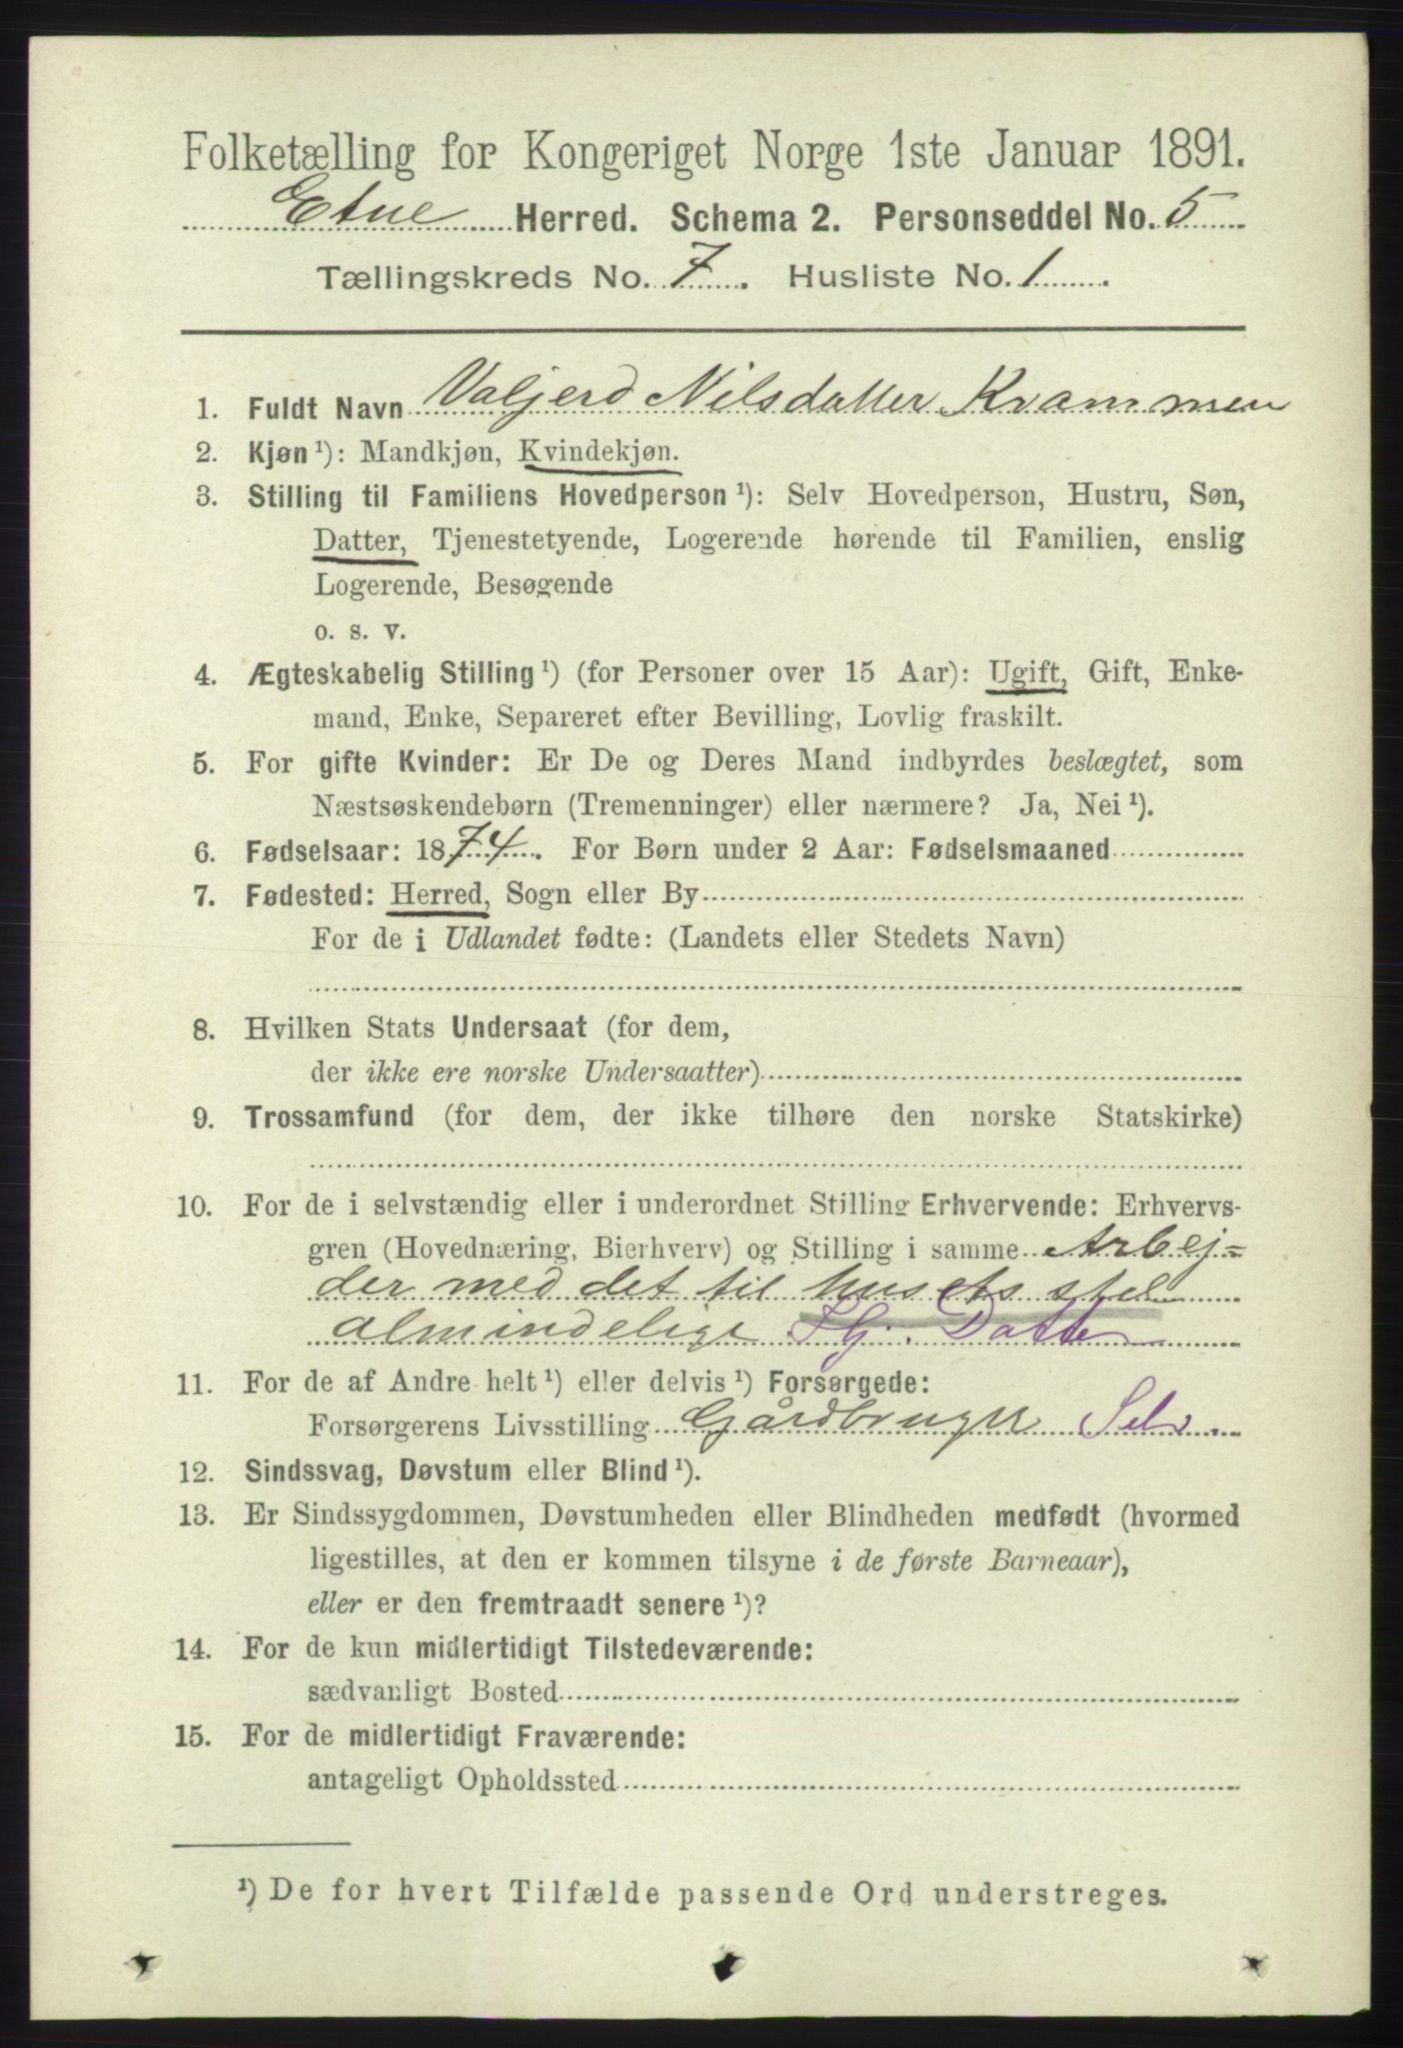 Folketælling for Kongeriget Norge 1ste Januar 1891.
Etne Herred. Schema 2. Personseddel No. 5
Tællingskreds No. 7. Husliste No. 1.
1. Fuldt Navn Valjerd Nilsdatter Krammen
2. Kjøn ¹): Mandkjøn, Kvindekjøn.
3. Stilling til Familiens Hovedperson ¹): Selv Hovedperson, Hustru, Søn,
Datter, Tjenestetyende, Logerende hørende til Familien, enslig
Logerende, Besøgende
o. s. v.
4. Ægteskabelig Stilling ¹) (for Personer over 15 Aar): Ugift, Gift, Enke-
mand, Enke, Separeret efter Bevilling, Lovlig fraskilt.
5. For gifte Kvinder: Er De og Deres Mand indbyrdes beslægtet, som
Næstsøskendebørn (Tremenninger) eller nærmere? Ja, Nei ¹).
6. Fødselsaar: 1874. For Børn under 2 Aar: Fødselsmaaned
7. Fødested: Herred, Sogn eller By
For de i Udlandet fødte: (Landets eller Stedets Navn)
8. Hvilken Stats Undersaat (for dem,
der ikke ere norske Undersaatter)
9. Trossamfund (for dem, der ikke tilhøre den norske Statskirke)
10. For de i selvstændig eller i underordnet Stilling Erhvervende: Erhvervs-
gren (Hovednæring, Bierhverv) og Stilling i samme Arbej=
der med det til husets stel
almindelige Hg. Datter
11. For de af Andre helt ¹) eller delvis ¹) Forsørgede:
Forsørgerens Livsstilling Gårdbruger Selv.
12. Sindssvag, Døvstum eller Blind ¹).
13. Er Sindssygdommen, Døvstumheden eller Blindheden medfødt (hvormed
ligestilles, at den er kommen tilsyne i de første Barneaar),
eller er den fremtraadt senere ¹)?
14. For de kun midlertidigt Tilstedeværende:
sædvanligt Bosted
15. For de midlertidigt Fraværende:
antageligt Opholdssted
¹) De for hvert Tilfælde passende Ord understreges.